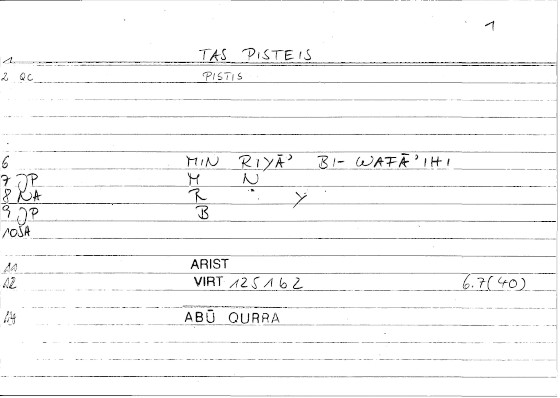 1
1 TAS PISTEIS
2 QC PISTIS
6 MIN RIYĀ' BI- WAFĀ'IHI
7 JP M N
8 NA R Y
9 JP B
10 SA
11 ARIST
12 VIRT 125162 6.7(40)
14 ABŪ QURRA